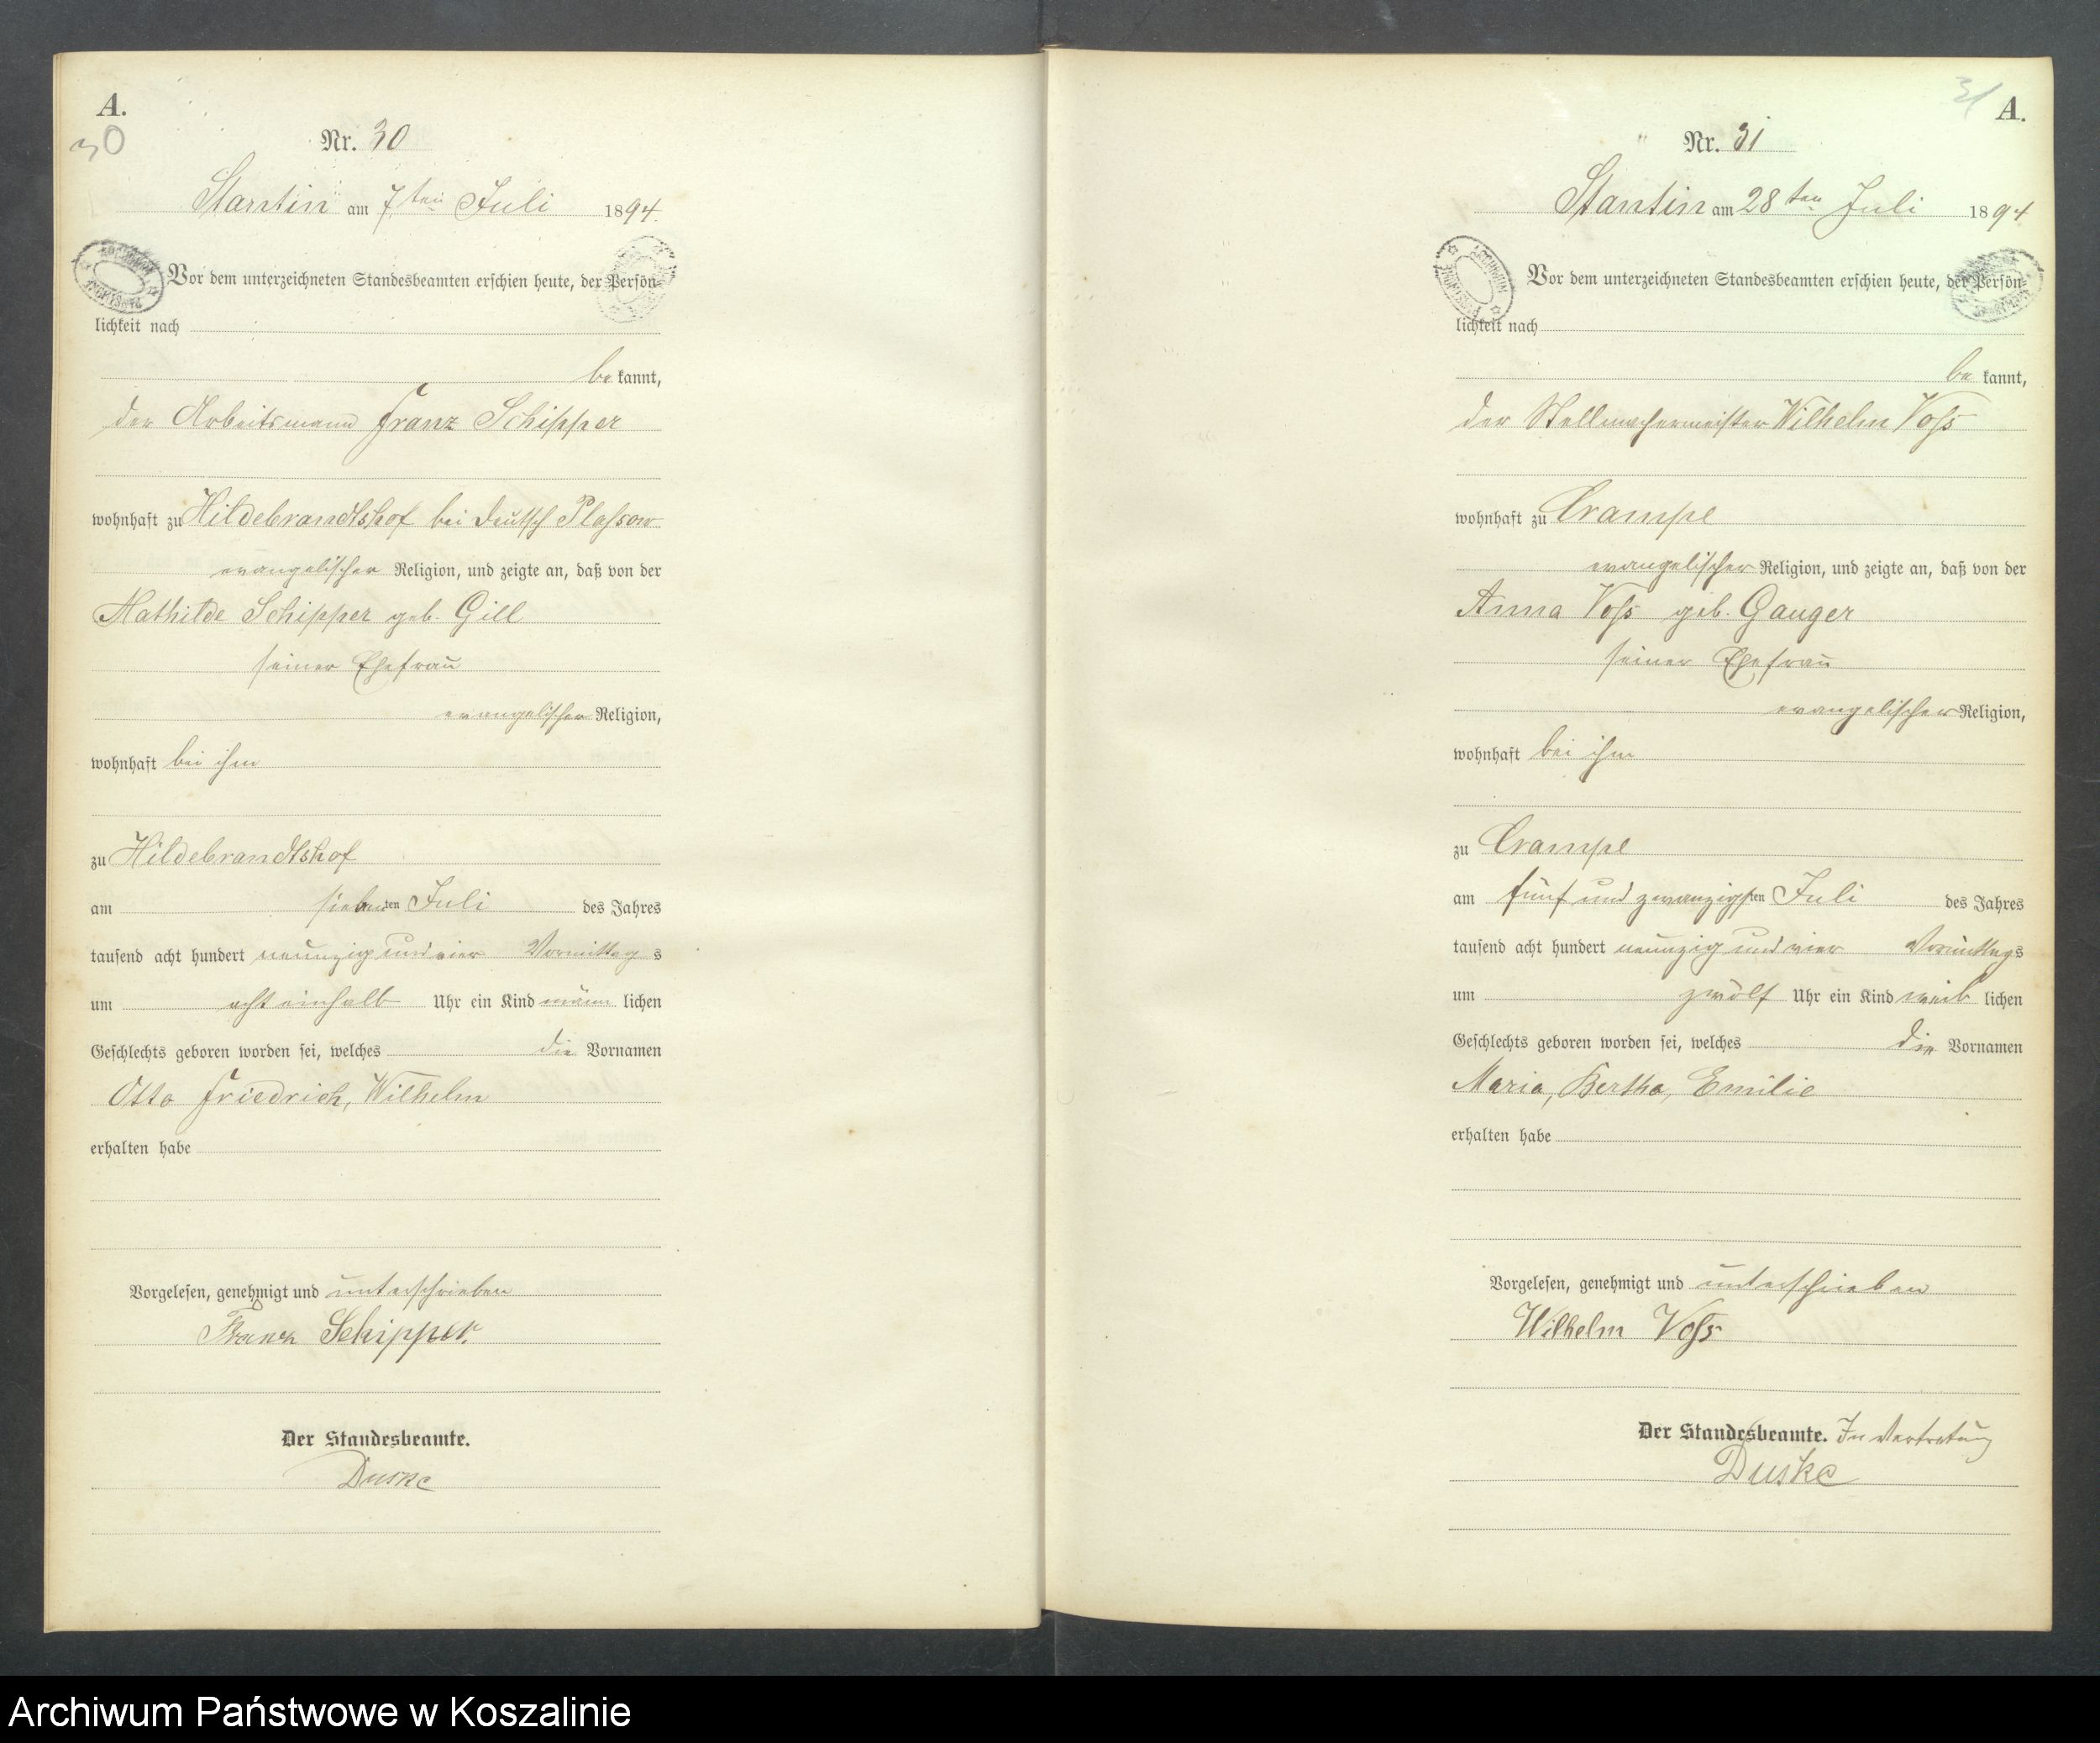 A.
30
Nr. 30
Stantin am 7ten Juli 1894.
Vor dem unterzeichneten Standesbeamten erschien heute, der Persön-
lichkeit nach
be kannt,
der Arbeitsmann Franz Schipper
wohnhaft zu Hildebrandtshof bei Deutsch Plassow
evangelischer Religion, und zeigte an, daß von der
Mathilde Schipper geb. Gill
seiner Ehefrau
evangelischer Religion,
wohnhaft bei ihm
zu Hildebrandtshof
am siebenten Juli des Jahres
tausend acht hundert neunzig und vier Vormittags
um acht einhalb Uhr ein Kind männlichen
Geschlechts geboren worden sei, welches die Vornamen
Otto Friedrich, Wilhelm
erhalten habe
Vorgelesen, genehmigt und unterschrieben
Franz Schipper.
Der Standesbeamte.
Duske
31 A.
Nr. 31
Stantin am 28ten Juli 1894.
Vor dem unterzeichneten Standesbeamten erschien heute, der Persön-
lichkeit nach
be kannt,
der Stellmachermeister Wilhelm Voß
wohnhaft zu Crampe
evangelischer Religion, und zeigte an, daß von der
Anna Voß geb. Gauger
seiner Ehefrau
evangelischer Religion,
wohnhaft bei ihm
zu Crampe
am fünf und zwanzigsten Juli des Jahres
tausend acht hundert neunzig und vier Vormittags
um zwölf Uhr ein Kind weiblichen
Geschlechts geboren worden sei, welches die Vornamen
Maria, Bertha, Emilie
erhalten habe
Vorgelesen, genehmigt und unterschrieben
Wilhelm Voß
Der Standesbeamte. In Vertretung
Duske
Archiwum Państwowe w Koszalinie